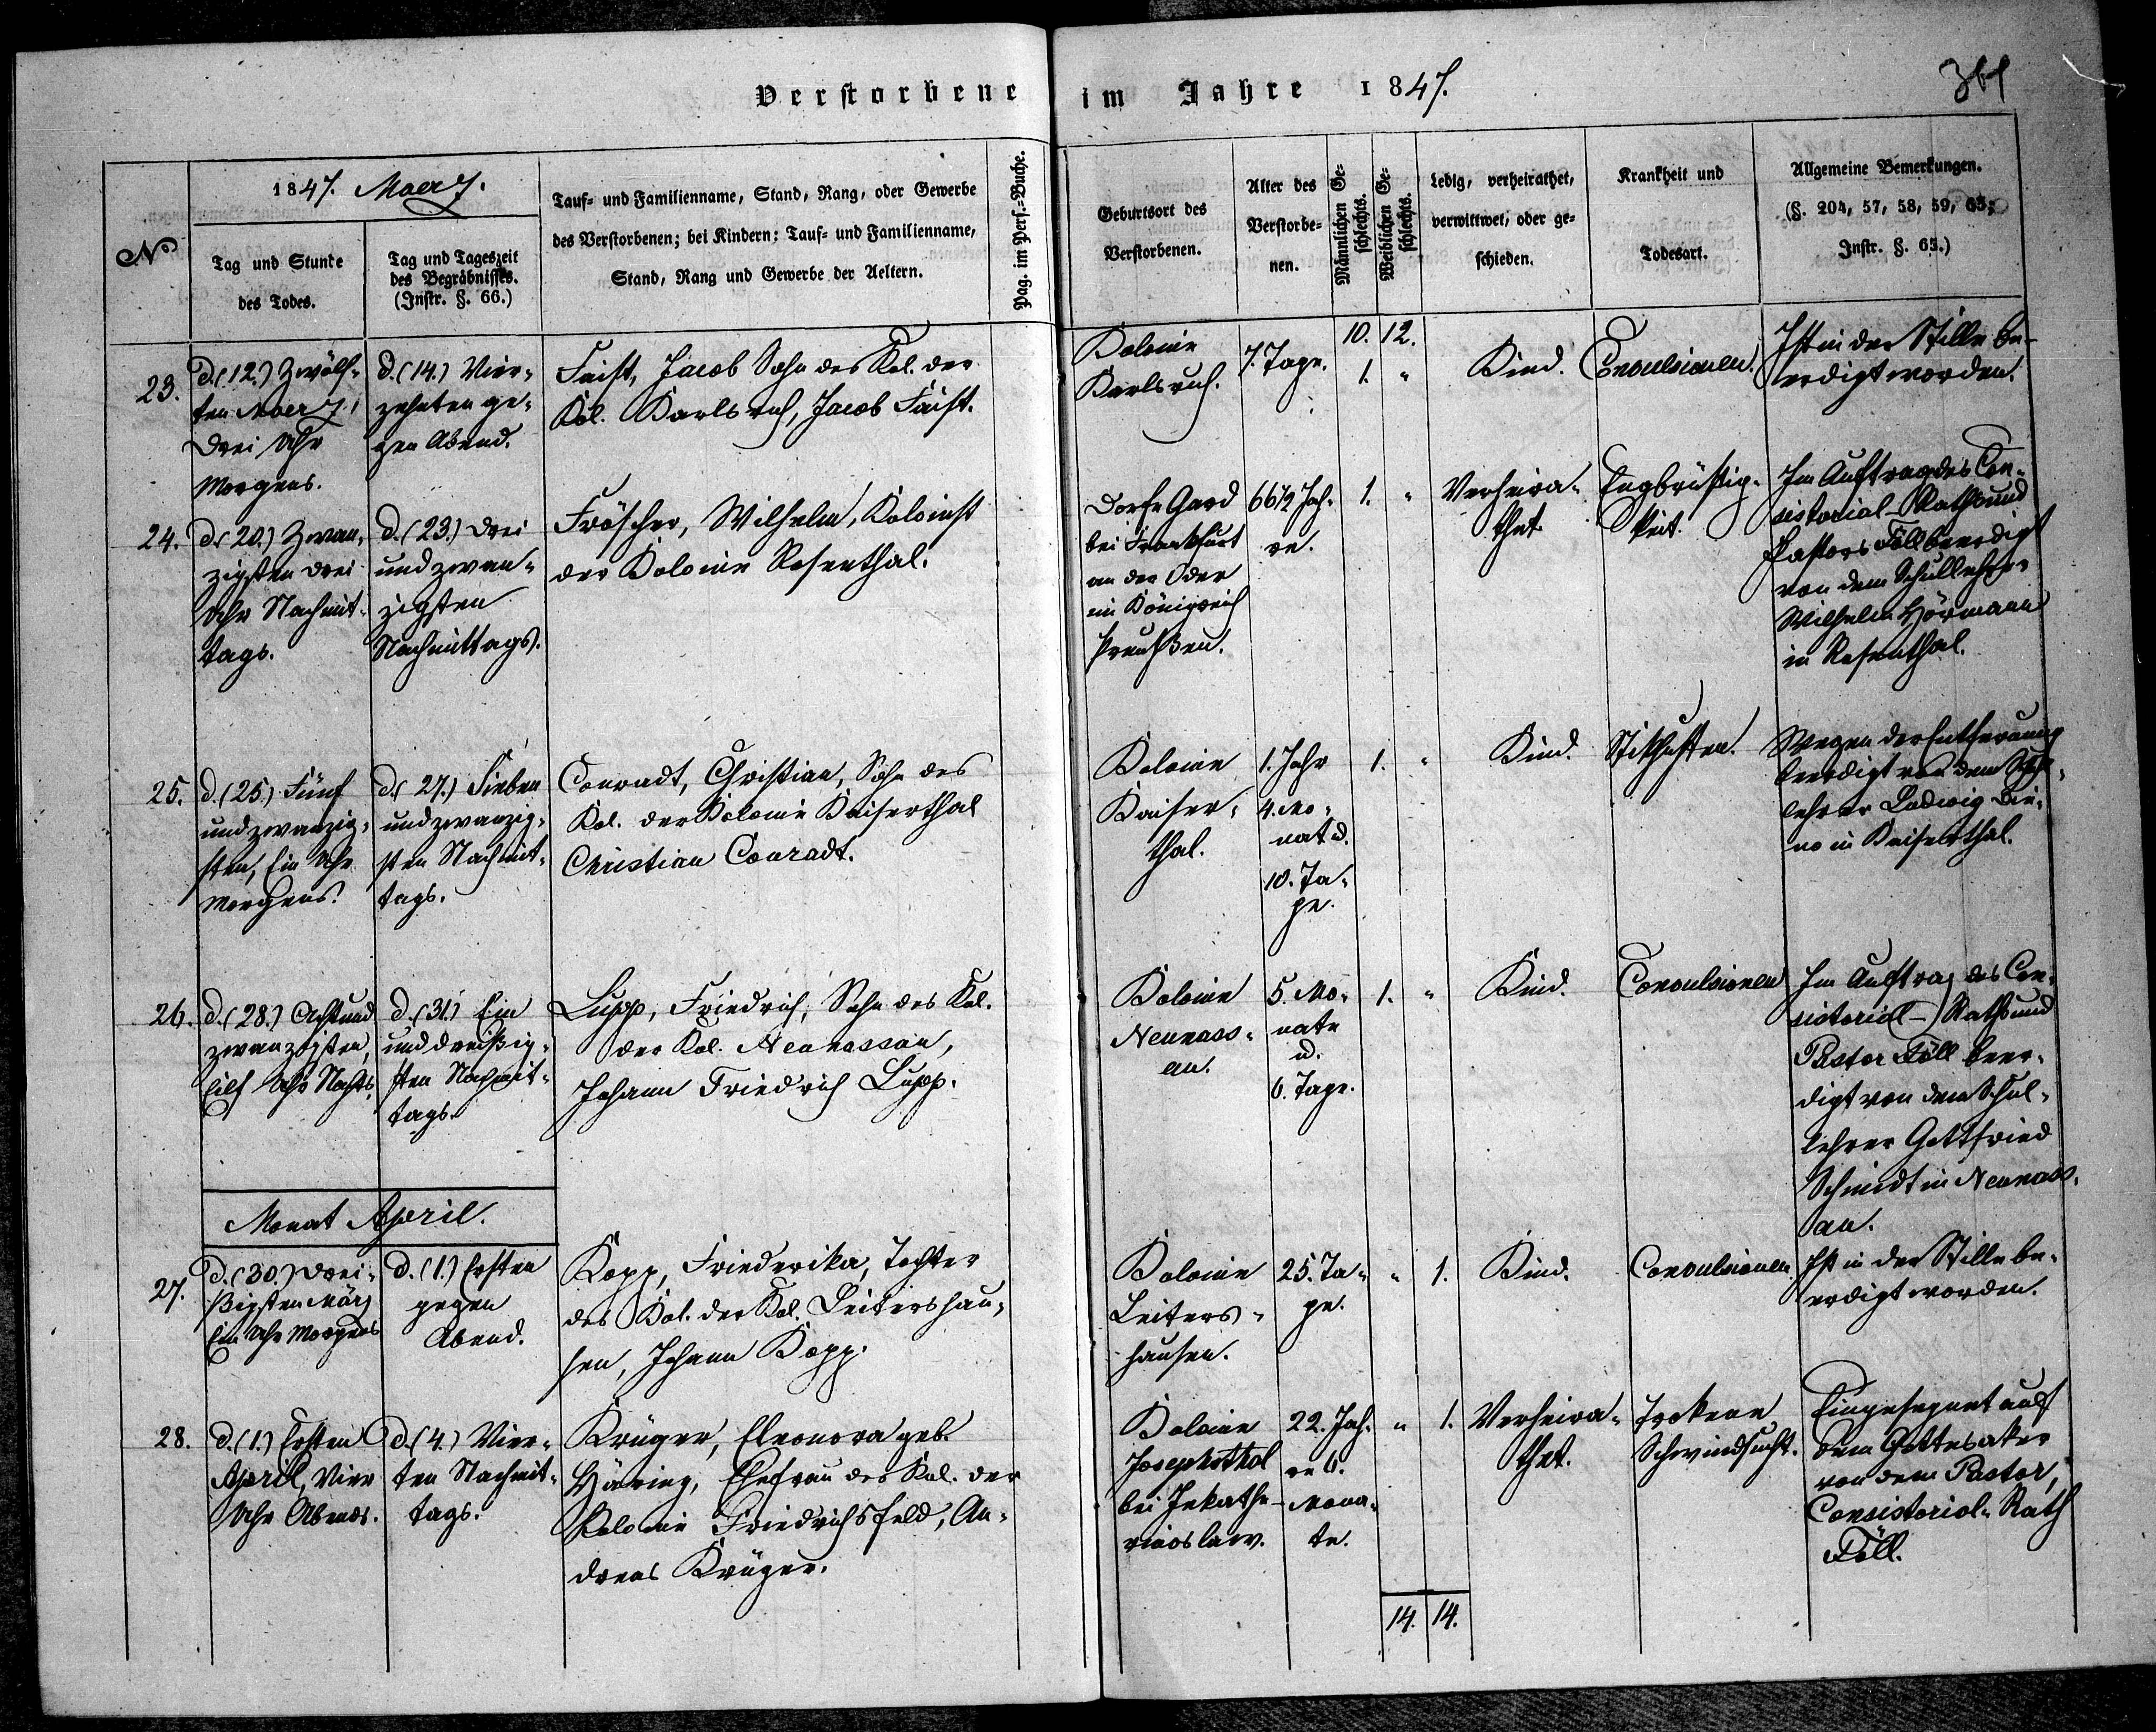 Verstorbene im Jahre 1847.
361
No
1847. Maerz.
Tag und Stunde
des Todes.
Tag und Tageszeit
des Begräbnisses.
(Instr. §. 66.)
Tauf- und Familienname, Stand, Rang, oder Gewerbe
des Verstorbenen; bei Kindern: Tauf- und Familienname,
Stand, Rang und Gewerbe der Aeltern.
Pag. im Pers.-Buche.
Geburtsort des
Verstorbenen.
Alter des
Verstorbe-
nen.
Männlichen Ge-
schlechts.
Weiblichen Ge-
schlechts.
Ledig, verheirathet,
verwittwet, oder ge-
schieden.
Krankheit und
Todesart.
Allgemeine Bemerkungen.
(§. 204, 57, 58, 59, 65;
Instr. §. 65.)
10. 12.
23.
d. (12.) Zwölf-
ten Maerz,
Drei Uhr
Morgens.
d. (14.) Vier-
zehnten ge-
gen Abend.
Faist, Jacob Sohn des Kol. der
Kol. Karlsruh, Jacob Faist.
Kolonie
Karlsruh.
7. Tage.
1. "
Kind.
Convulsionen.
Ist in der Stille be-
erdigt worden.
24.
d. (20.) Zwan-
zigsten drei
Uhr Nachmit-
tags.
d. (23.) Drei
und zwan-
zigsten
Nachmittags.
Fröscher, Wilhelm, Kolonist
der Kolonie Rosenthal.
Dorfe Gard
bei Frankfurt
an der Oder
im Königreich
Preußen.
66 1/2 Jah-
re.
1. "
Verheira-
thet.
Engbrüstig-
keit.
Im Auftrag des Con-
sistorial-Raths und
Pastors Föll beerdigt
von dem Schullehrer
Wilhelm Hörmann
in Rosenthal.
25.
d. (25.) Fünf
und zwanzig-
sten, Ein Uhr
Morgens.
d. (27.) Sieben
und zwanzig-
sten Nachmit-
tags.
Conradt, Christian, Sohn des
Kol. der Kolonie Kaiserthal
Christian Conradt.
Kolonie
Kaiser-
thal.
1. Jahr
4. Mo-
nat u.
10. Ta-
ge.
1. "
Kind.
Stikhusten.
Wegen der Entfernung
beerdigt von dem Schul-
lehrer Ludwig
in Kaiserthal.
26.
d. (28.) Acht und
zwanzigsten,
Eilf Uhr Nachts.
d. (31.) Ein
und dreißig-
sten Nachmit-
tags.
Lupp, Friedrich, Sohn des Kol.
der Kol. Neunassau,
Johann Friedrich Lupp.
Kolonie
Neunass-
au.
5. Mo-
nate
u.
6. Tage.
1. "
Kind.
Convulsionen
Im Auftrag des Con-
sistorial-Raths und
Pastor Föll beer-
digt von dem Schul-
lehrer Gottfried
Schmidt in Neunass-
au.
Monat April.
27.
d. (30.) Drei-
ßigsten März
Ein Uhr Morgens
d. (1.) Ersten
gegen
Abend.
Kopp, Friederika, Tochter
des Kol. der Kol. Leitershau-
sen, Johann Kopp.
Kolonie
Leiters-
hausen.
25. Ta-
ge.
" 1.
Kind.
Convulsionen.
Ist in der Stille be-
erdigt worden.
28.
d. (1.) Ersten
April, Vier
Uhr Abends.
d. (4.) Vier-
ten Nachmit-
tags.
Krüger, Eleonora geb.
Häring, Ehefrau des Kol. der
Kolonie Friedrichsfeld, An-
dreas Krüger.
Kolonie
Josephsthal
bei Jekathe-
rinoslaw.
22. Jah-
re 6.
Mona-
te.
" 1.
Verheira-
thet.
Trokene
Schwindsucht.
Eingesegnet auf
dem Gottesaker
von dem Pastor,
Consistorial-Rath
Föll.
14. 14.